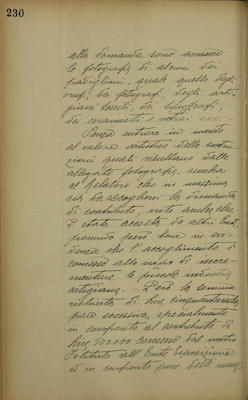 230
alla domanda sono annesse
le fotografie di alcuni dei
padiglioni, quale quello degli
orafi, dei fotografi, degli arti-
giani tessili, dei tipografi,
dei ceramisti e vetrai ecc.
Senza entrare in merito
al valore artistico delle costru-
zioni quali risultano dalle
allegate fotografie, sembra
al Relatore che in massima
sia da accogliersi la domanda
di contributo, visto anche che
è stata accolta da altri Enti,
ponendo però bene in evi-
denza che l'accoglimento è
concesso allo scopo di incre-
mentare le piccole industrie
artigiane. Però la somma
richiesta di lire cinquantamila
pare eccessiva, specialmente
in confronto al contributo di
lire 500.000 concesso dal nostro
Istituto all'Ente Esposizione
ed in confronto pure delle